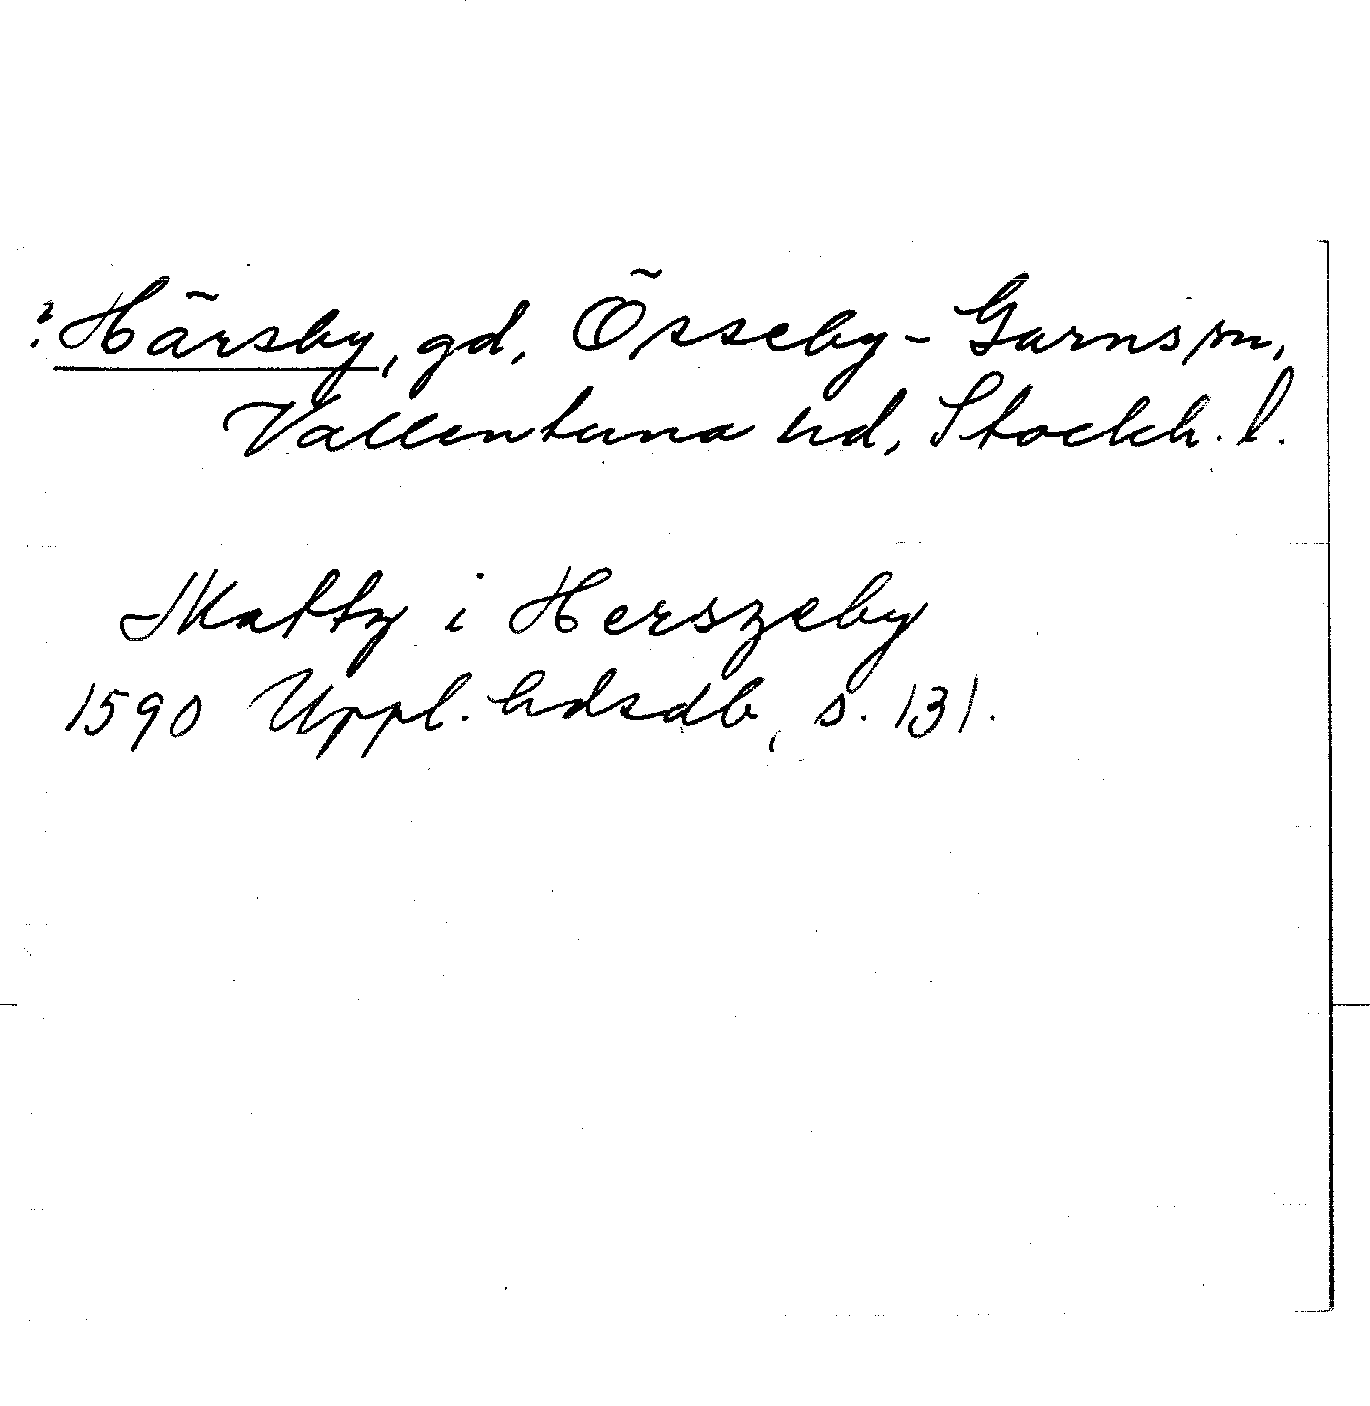 ? Härsby, gd, Össeby-Garns sn,
Vallentuna hd, Stockh. l.
Mattz i Herszeby
1590 Uppl. hdsdb, s. 131.